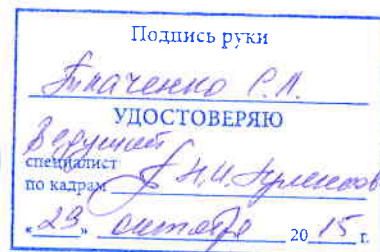 Подпись руки
Ткаченко С.Л.
УДОСТОВЕРЯЮ
Ведущий
специалист
по кадрам Н.И.
«29» октября 2015 г.